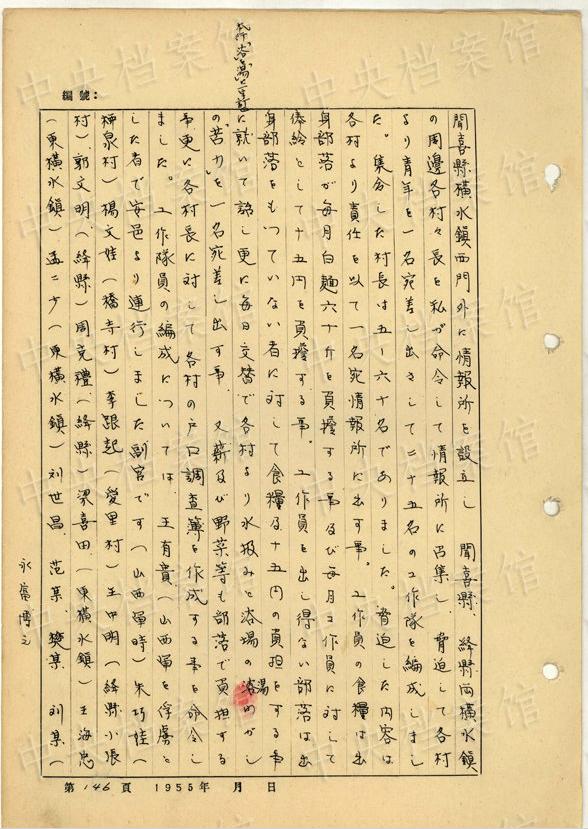 編號：
聞喜縣横水鎮西門外に情報所を設立し 聞喜縣、絳縣両横水鎮
の周邊各村々長を私が命令して情報所に召集し 脅迫して各村
より青年を一名宛差し出さして二十五名の工作隊を編成しまし
た。集合した村長は五－六十名でありました。脅迫した内容は
各村より責任を以て一名宛情報所に出す事。工作員の食糧は出
身部落が毎月白麺六十斤を負擔する事及び毎月工作員に対して
俸給として十五円を負擔する事。工作員を出し得ない部落は出
身部落をもっていない者に対して食糧及十五円の負担をする事
に就いて諮し更に毎日交替で各村より水扱みと浴場の湯わかし
の苦力を一名宛差し出す事 又薪及び野菜等も部落で負担する
事更に各村長に対して各村の戸口調査簿を作成する事を命令し
ました。工作隊員の編成については、王有貴（山西軍を俘虜と
した者で安邑より連行しました副官です（山西軍時）朱巧娃（
神泉村）楊文娃（橋寺村）李跟起（愛里村）王中明（絳縣小張
村）郭文明（絳縣）周克禮（絳縣）梁喜田（東横水鎮）王海忠
（東横水鎮）孟二少（東横水鎮）刘世昌、范某、樊某 刘某（
永富博之
第146頁 1955年 月 日
中央档案馆